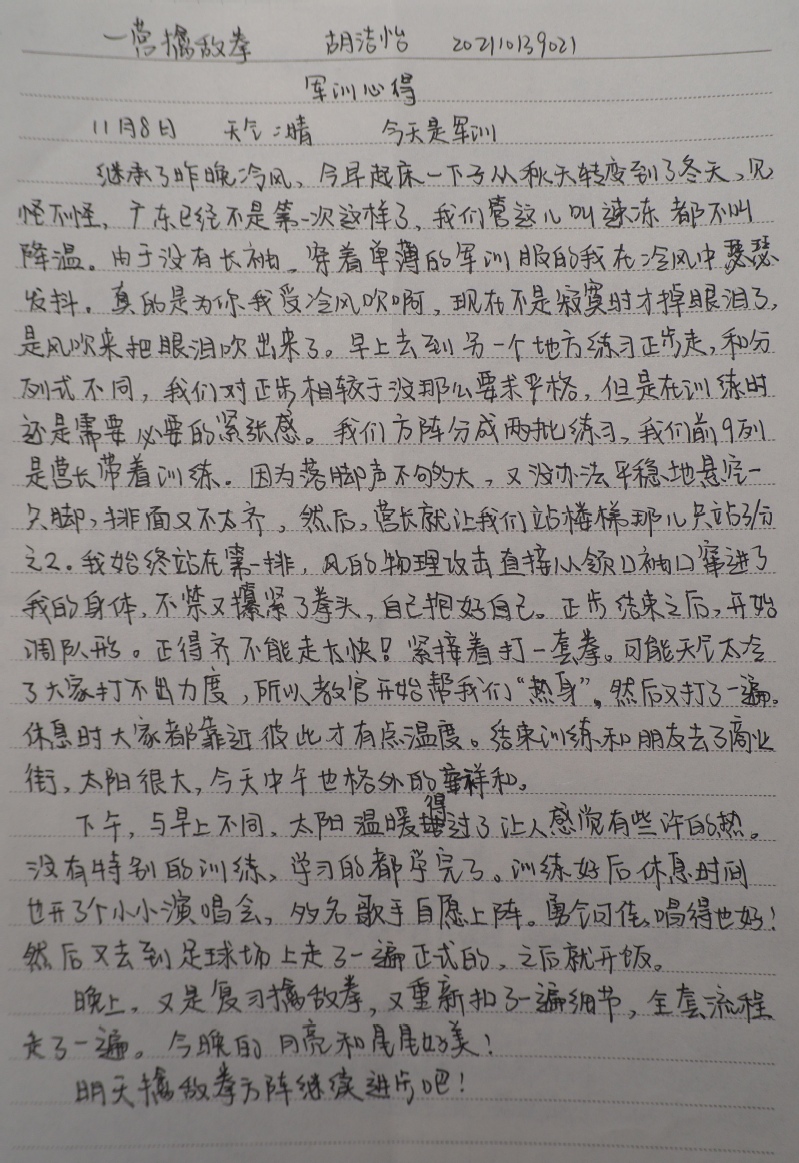 一营擒敌拳 胡洁怡 202110139021
军训心得
11月8日 天气：晴 今天是军训
继承了昨晚冷风，今早起床一下子从秋天转变到了冬天，见
怪不怪，广东已经不是第一次这样了，我们管这儿叫速冻都不叫
降温。由于没有长袖，穿着单薄的军训服的我在冷风中瑟瑟
发抖。真的是为你我受冷风吹啊，现在不是寂寞时才掉眼泪了，
是风吹来把眼泪吹出来了。早上去到另一个地方练习正步走，和分
列式不同，我们对正步相较于没那么要求严格，但是在训练时
还是需要必要的紧张感。我们方阵分成两批练习，我们前9列
是营长带着训练。因为落脚声不够大，又没办法平稳地悬空一
只脚，排面又不太齐，然后，营长就让我们站楼梯那儿只站3分
之2。我始终站在第一排，风的物理攻击直接从领口袖口窜进了
我的身体，不禁又攥紧了拳头，自己抱好自己。正步结束之后，开始
调队形。正得齐不能走太快？紧接着打一套拳。可能天气太冷
了大家打不出力度，所以教官开始帮我们“热身”，然后又打了一遍。
休息时大家都靠近彼此才有点温度。结束训练和朋友去了商业
街，太阳很大，今天中午也格外的祥和。
下午，与早上不同，太阳温暖得过了让人感觉有些许的热。
没有特别的训练，学习的都学完了。训练好后休息时间
也开了个小小演唱会，多名歌手自愿上阵。勇气可佳，唱得也好！
然后又去到足球场上走了一遍正式的，之后就开饭。
晚上，又是复习擒敌拳，又重新扣了一遍细节，全套流程
走了一遍。今晚的月亮和星星好美！
明天擒敌拳方阵继续进步吧！